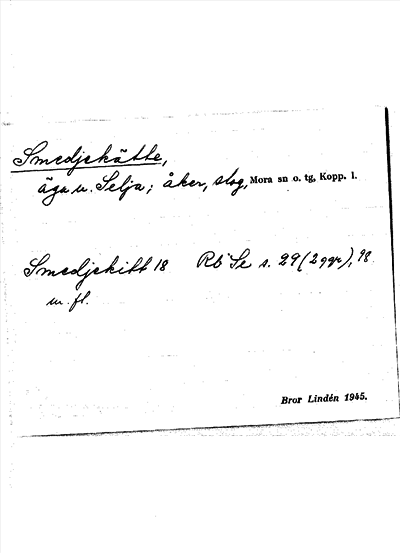 Smedjekätte,
äga u. Selja; åker, slog, Mora sn o. tg, Kopp. l.
Smedjekitt 18 Rb Se s. 29 (2 ggr), 98
m. fl.
Bror Lindén 1945.